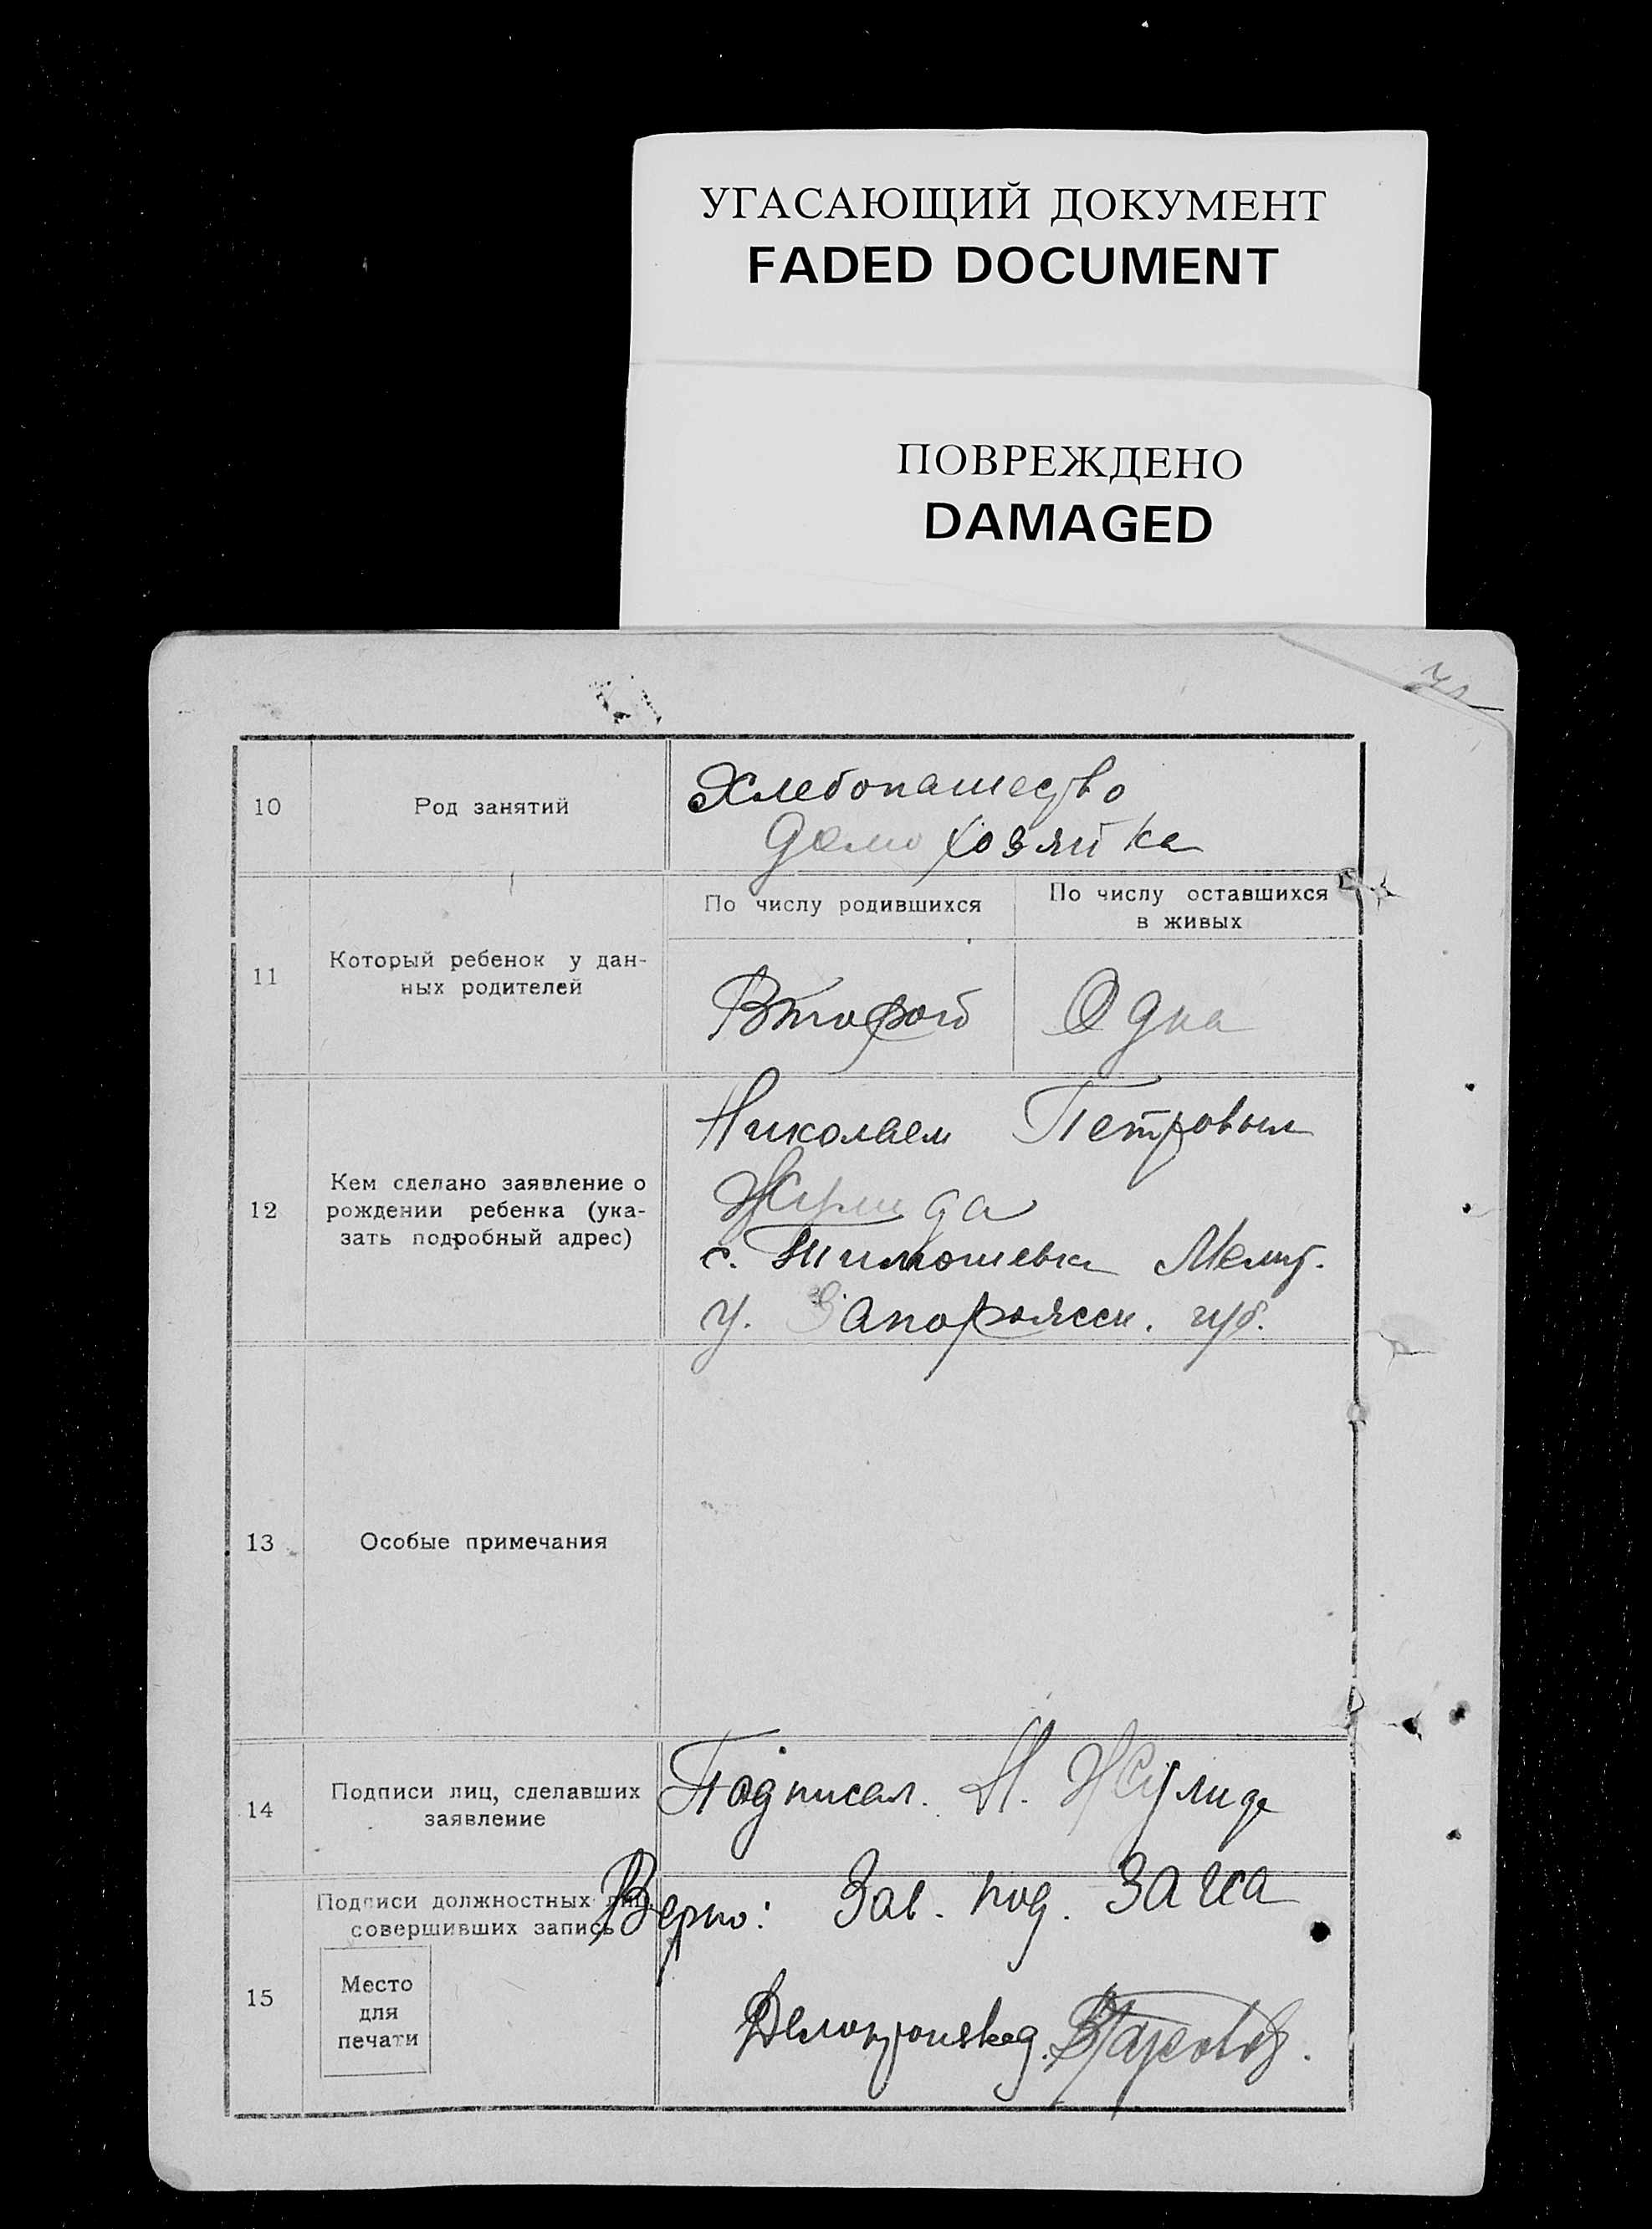 УГАСАЮЩИЙ ДОКУМЕНТ
FADED DOCUMENT
ПОВРЕЖДЕНО
DAMAGED
10
Род занятий
Хлебопашество
Домохозяйка
11
Который ребенок у дан-
ных родителей
По числу родившихся
По числу оставшихся
в живых
Второй
Одна
12
Кем сделано заявление о
рождении ребенка (ука-
зать подробный адрес)
Николаем Петровым
Жулида
с. Тимошевка Мелит.
у. Запорожск. губ.
13
Особые примечания
14
Подписи лиц, сделавших
заявление
Подписал. Н. Жулида
15
Подписи должностных лиц
совершивших запись
Место
для
печати
Верно: Зав. под. ЗАГСа